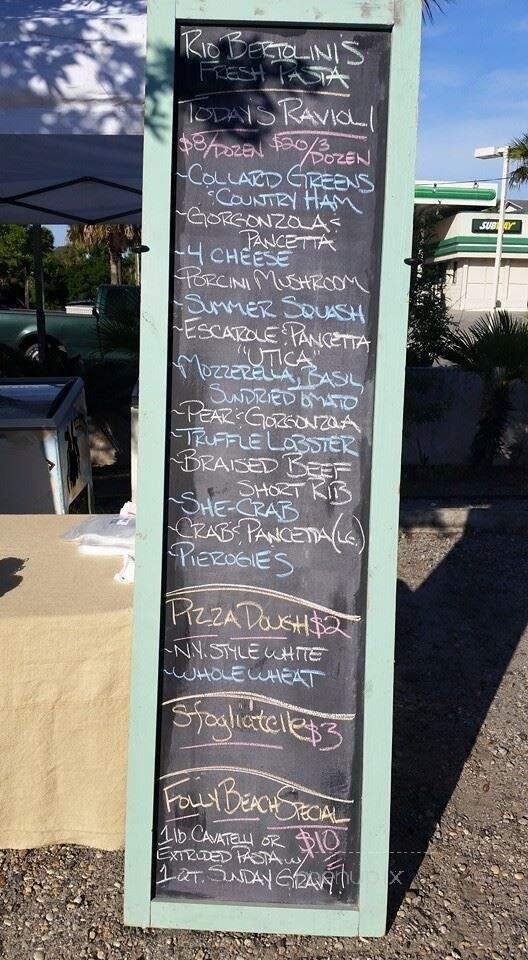 RIO BERTOLINI'S
FRESH PASTA
TODAY'S RAVIOLI
$8/DOZEN $20/3 DOZEN
~COLLARD GREENS
& COUNTRY HAM
~GORGONZOLA &
PANCETTA
~4 CHEESE
~PORCINI MUSHROOM
~SUMMER SQUASH
~ESCAROLE & PANCETTA
"UTICA"
~MOZZERELLA, BASIL
SUNDRIED TOMATO
~PEAR & GORGONZOLA
~TRUFFLE LOBSTER
~BRAISED BEEF
SHORT RIB
~SHE-CRAB
~CRAB & PANCETTA (LG.)
~PIEROGIES
PIZZA DOUGH $2
~N.Y. STYLE WHITE
~WHOLE WHEAT
Sfogliatelle $3
FOLLY BEACH SPECIAL
1 lb CAVATELLI OR $10
EXTRUDED PASTA w/
1 QT. SUNDAY GRAVY!
SUBWAY